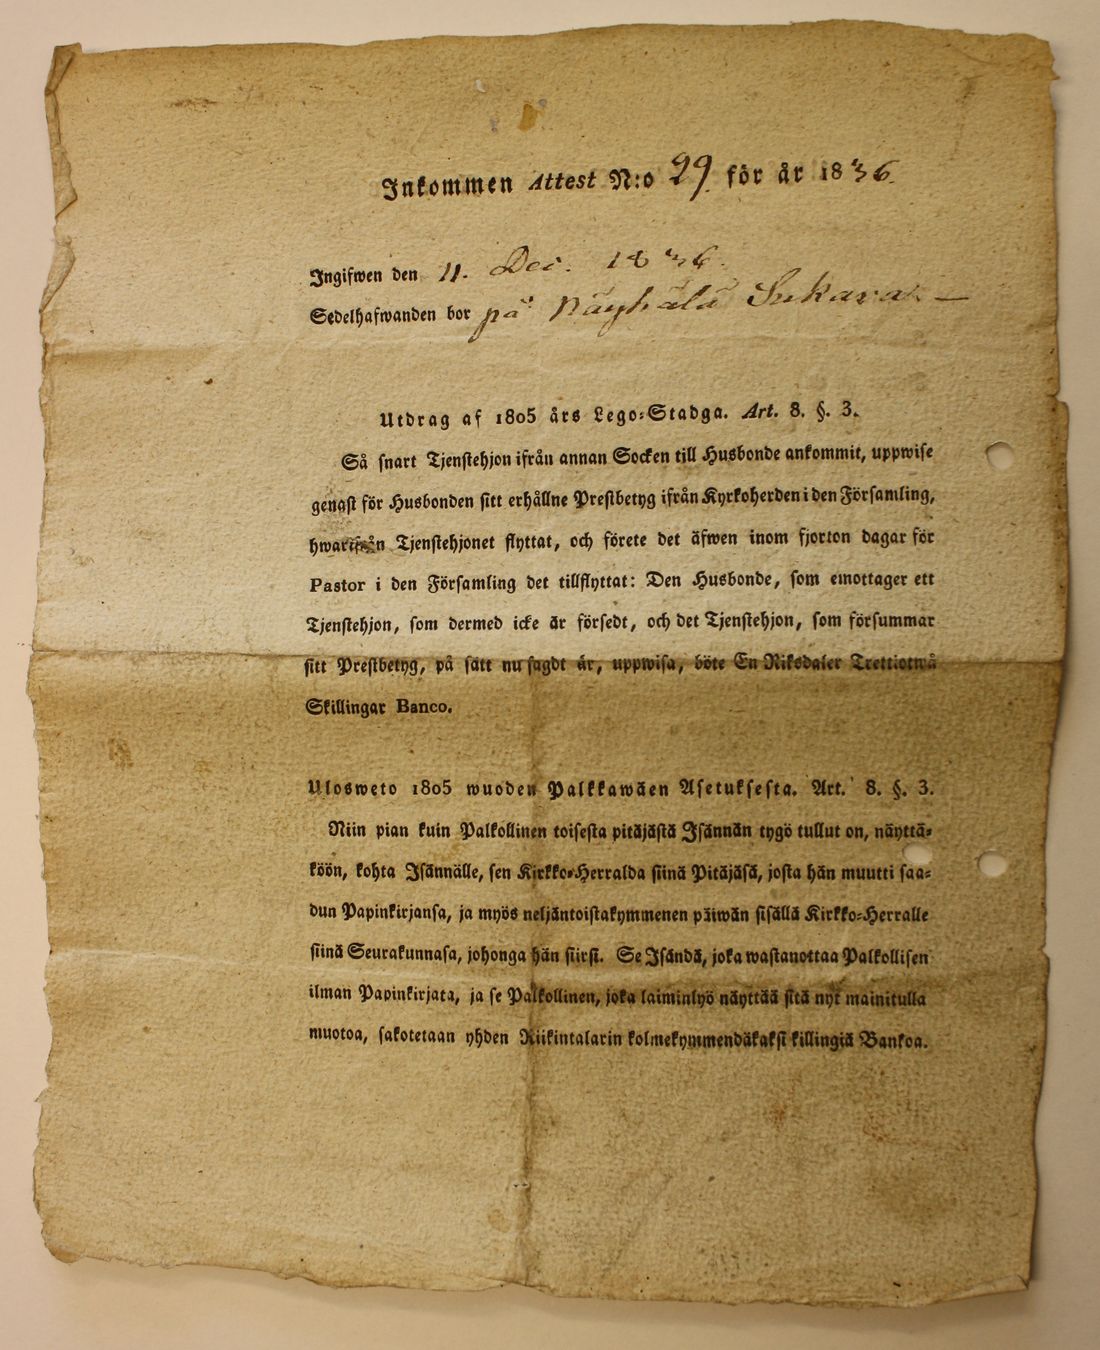 Inkommen Attest N:o 29. för år 1836.
Ingifwen den 11. Dec. 1836.
Sedelhafwanden bor på Näyhälä Sukara —
Utdrag af 1805 års Lego-Stadga. Art. 8. §. 3.
Så snart Tjenstehjon ifrån annan Socken till Husbonde ankommit, uppwise
genast för Husbonden sitt erhållne Prestbetyg ifrån Kyrkoherden i den Församling,
hwartifrån Tjenstehjonet flyttat, och förete det äfwen inom fjorton dagar för
Pastor i den Församling det tillflyttat: Den Husbonde, som emottager ett
Tjenstehjon, som dermed icke är försedt, och det Tjenstehjon, som försummar
sitt Prestbetyg, på sätt nu sagdt är, uppwisa, böte En Riksdaler Trettiotwå
Skillingar Banco.
Ulosweto 1805 wuoden Palkkawäen Asetuksesta. Art. 8. §. 3.
Niin pian kuin Palkollinen toisesta pitäjästä Isännän tygö tullut on, näyttä-
köön, kohta Isännälle, sen Kirkko-Herralda siinä Pitäjäsä, josta hän muutti saa-
dun Papinkirjansa, ja myös neljäntoistakymmenen päiwän sisällä Kirkko-Herralle
siinä Seurakunnasa, johonga hän siirsi. Se Isändä, joka wastanottaa Palkollisen
ilman Papinkirjata, ja se Palkollinen, joka laiminlyö näyttää sitä nyt mainitulla
muotoa, sakotetaan yhden Riikintalarin kolmekymmendäkaksi killingiä Bankoa.